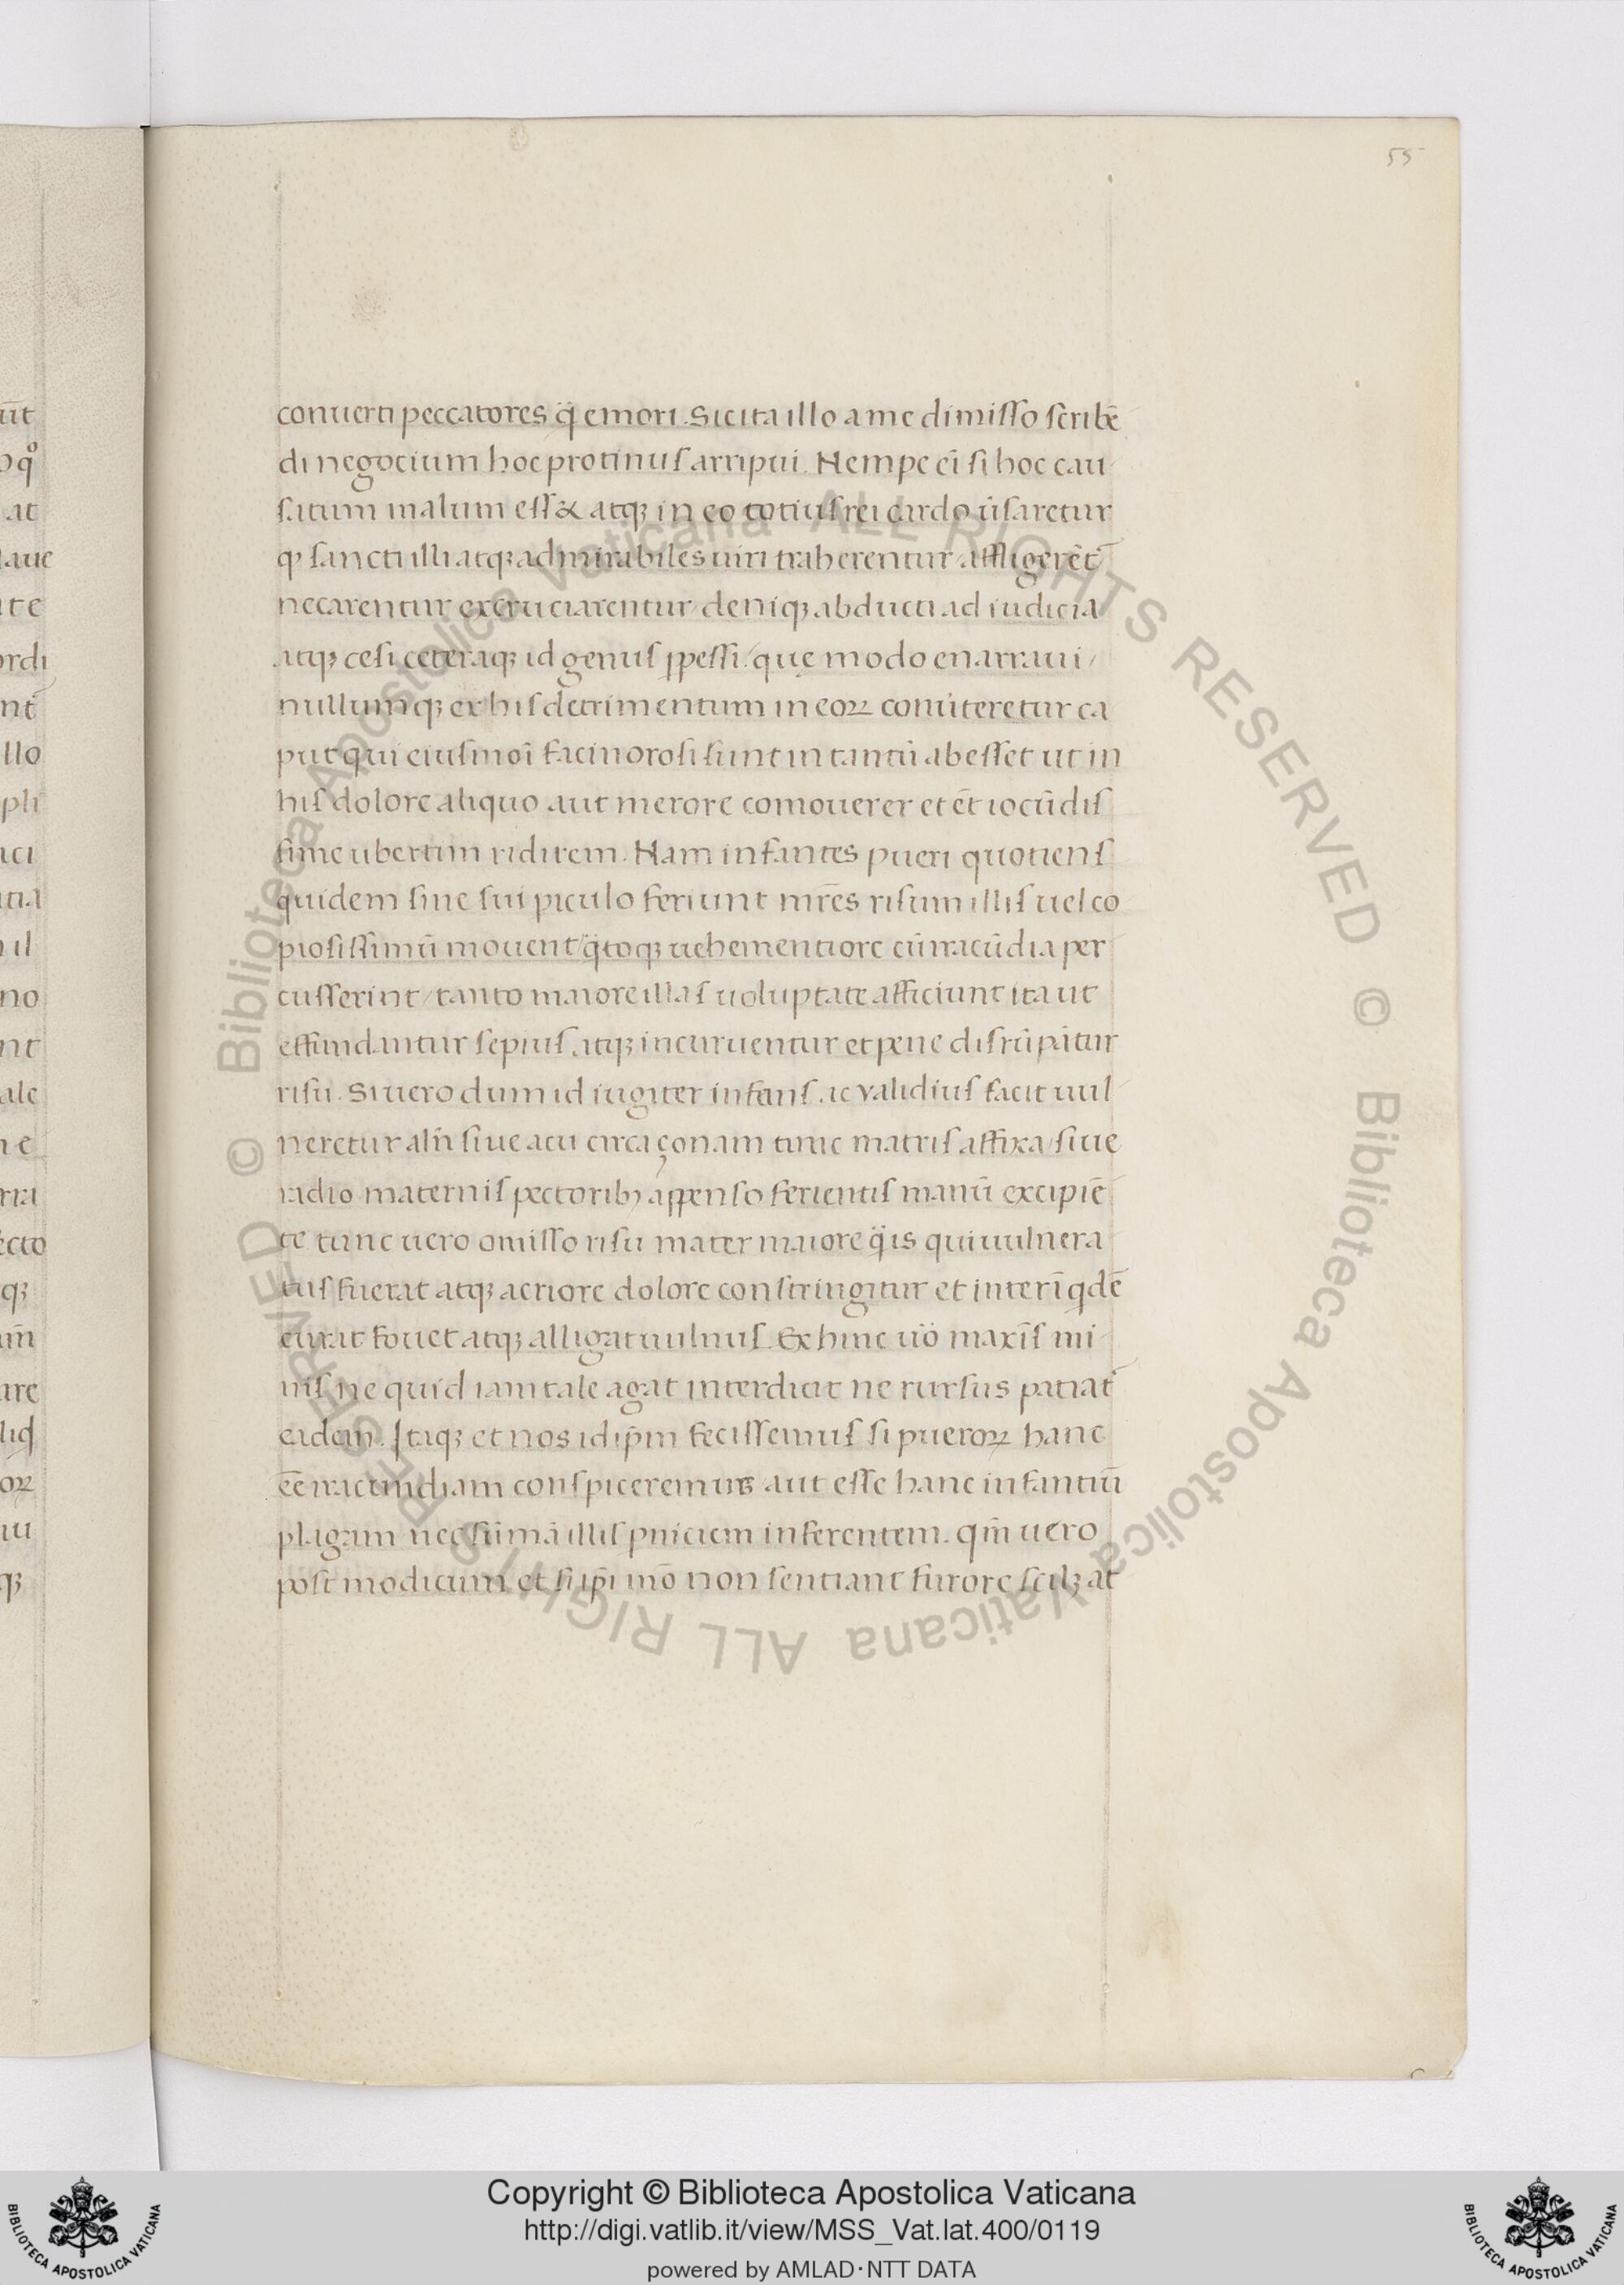 55
conuerti peccatores q̃ emori. Sic ita illo a me dimisso scribẽ
di negocium hoc protinus arripui. Nempe ei̅ si hoc cau
satum malum ess& atq; in eo totius rei cardo u̅saretur
ꝙ sancti illi atq; admirabiles uiri traherentur affligere̅t᷑
necarentur excruciarentur / deniq; abducti ad iudicia
atq; cesi ceteraq; id genus ꝑpessi / quę modo enarraui /
nullumq; ex his detrimentum in eoꝝ com̅iteretur ca
put qui eiusmoi̅ facinorosi sunt in tantu̅ abesset ut in
his dolore aliquo aut merore comouerer et et̅ iocu̅dis
sime ubertim riderem. Nam infantes pueri quotiens
quidem sine sui ꝑiculo feriunt mr̅es risum illis uel co
piosissimu̅ mouent / q̃toq; uehementiore cu̅ iracu̅dia per
cusserint / tanto maiore illas uoluptate afficiunt ita ut
effundantur sepius atq; incuruentur et pene disru̅pa̅tur
risu. Si uero dum id iugiter infans ac validius facit uul
neretur alr̅n siue acu circa çonam tunc matris affixa / siue
radio maternis pectorib; appenso ferientis manu̅ excipie̅
te tunc uero omisso risu mater maiore q̃ is qui uulnera
tus fuerat atq; acriore dolore constringitur et interi̅ qde̅
curat fouet atq; alligat uulnus. Ex hinc uo̅ maxi̅s mi
nis ne quid iam tale agat interdicit ne rursus patiat᷑
eadem. Itaq; et nos idip̅m fecissemus si pueroꝝ hanc
ee̅ iracundiam conspiceremus aut esse hanc infantiu̅
plagam nec su̅ma̅ illis ꝑniciem inferentem. qm̅ uero
post modicum et si ip̅i mo̅ non sentiant furore scilz at
Copyright © Biblioteca Apostolica Vaticana
http://digi.vatlib.it/view/MSS_Vat.lat.400/0119
powered by AMLAD·NTT DATA